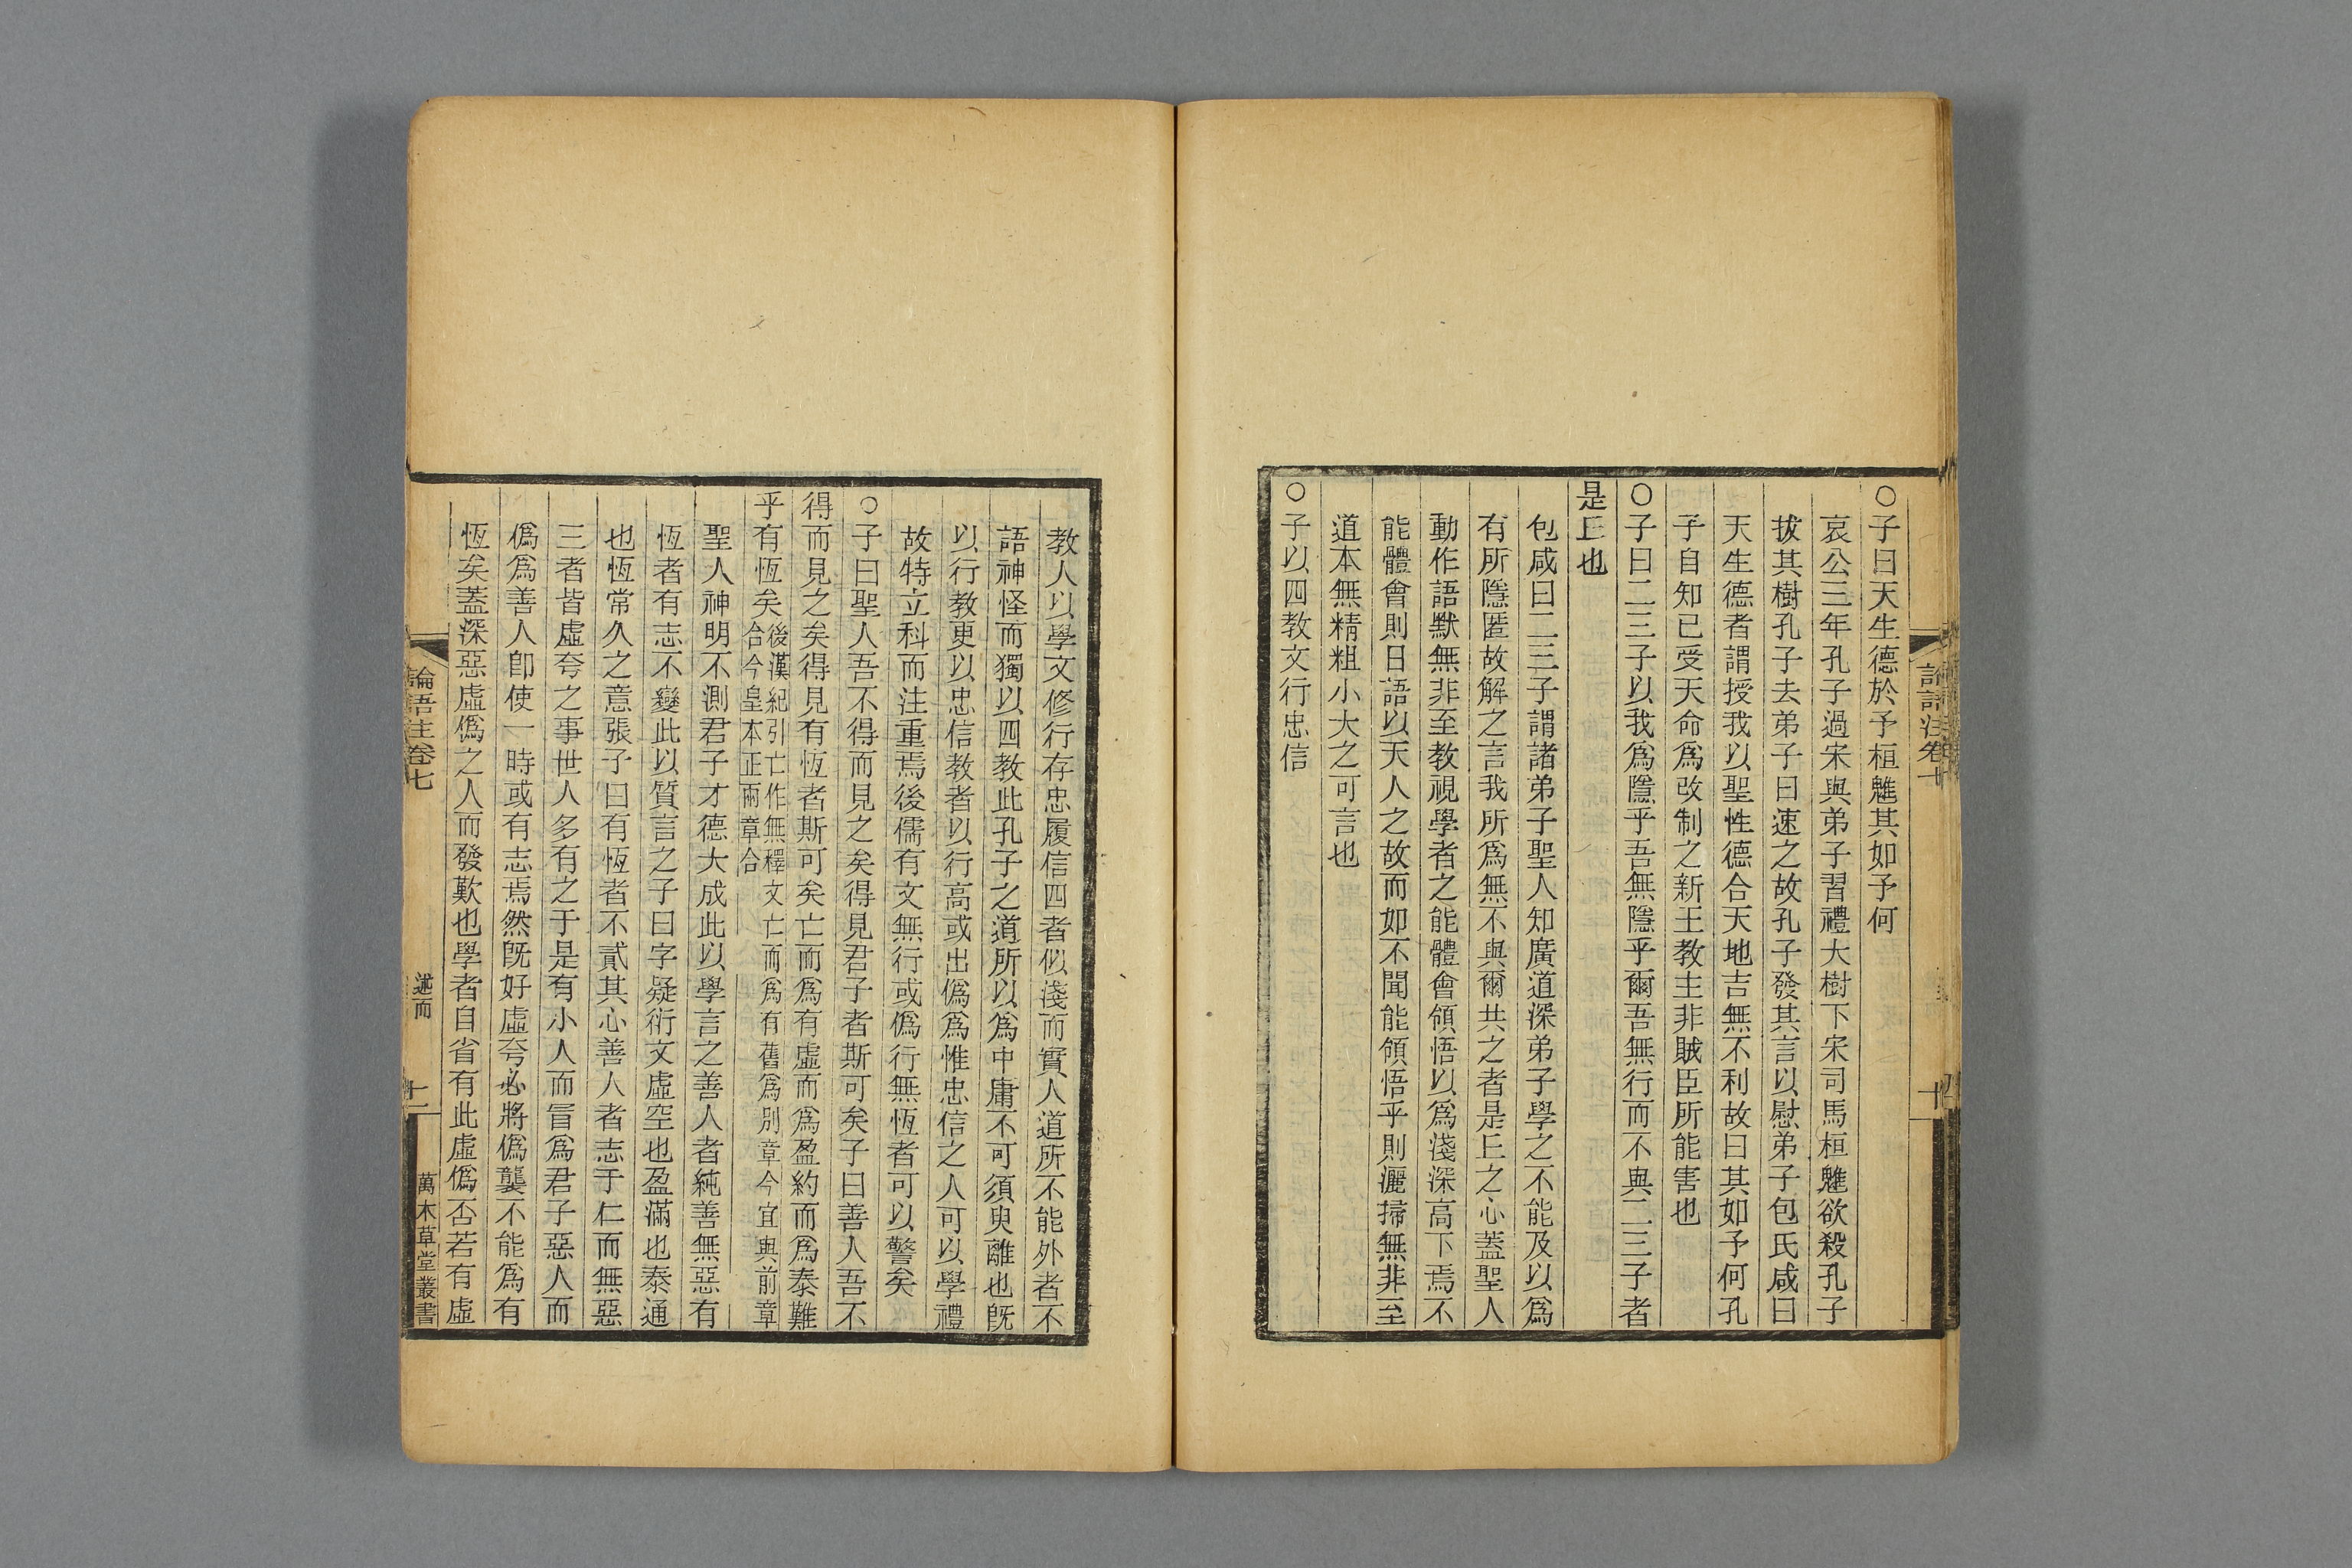 ○子曰天生德於予桓魋其如予何
哀公三年孔子過宋與弟子習禮大樹下宋司馬桓魋欲殺孔子
拔其樹孔子去弟子曰速之故孔子發其言以慰弟子包氏咸曰
天生德者謂授我以聖性德合天地吉無不利故曰其如予何孔
子自知已受天命爲改制之新王教主非賊臣所能害也
○子曰二三子以我爲隱乎吾無隱乎爾吾無行而不與二三子者
是丘也
包咸曰二三子謂諸弟子聖人知廣道深弟子學之不能及以爲
有所隱匿故解之言我所爲無不與爾共之者是丘之心蓋聖人
動作語默無非至教視學者之能體會領悟以爲淺深高下焉不
能體會則日語以天人之故而如不聞能領悟乎則灑掃無非至
道本無精粗小大之可言也
○子以四教文行忠信
教人以學文修行存忠履信四者似淺而實人道所不能外者不
語神怪而獨以四教此孔子之道所以爲中庸不可須臾離也旣
以行教更以忠信教者以行高或出僞爲惟忠信之人可以學禮
故特立科而注重焉後儒有文無行或僞行無恆者可以警矣
○子曰聖人吾不得而見之矣得見君子者斯可矣子曰善人吾不
得而見之矣得見有恆者斯可矣亡而爲有虛而爲盈約而爲泰難
乎有恆矣後漢紀引亡作無釋文亡而爲有舊爲別章今宜與前章
合今皇本正兩章合
聖人神明不測君子才德大成此以學言之善人者純善無惡有
恆者有志不變此以質言之子曰字疑衍文虛空也盈滿也泰通
也恆常久之意張子曰有恆者不貳其心善人者志于仁而無惡
三者皆虛夸之事世人多有之于是有小人而冒爲君子惡人而
僞爲善人卽使一時或有志焉然旣好虛夸必將僞襲不能爲有
恆矣蓋深惡虛僞之人而發歎也學者自省有此虛僞否若有虛
論語注卷七
述而
十一
萬木草堂叢書